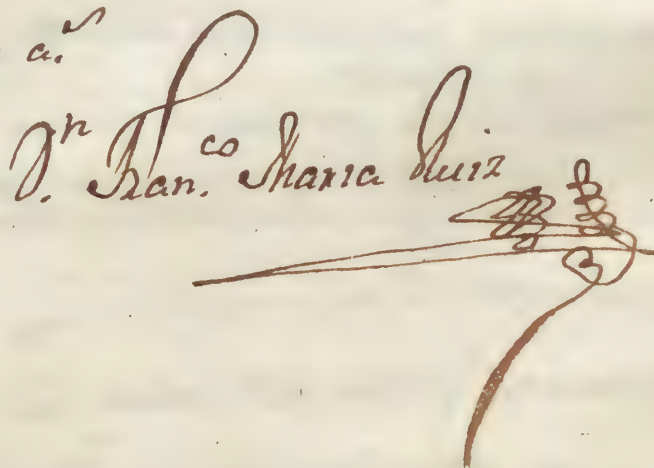 D.n Fran.co Maria Ruiz